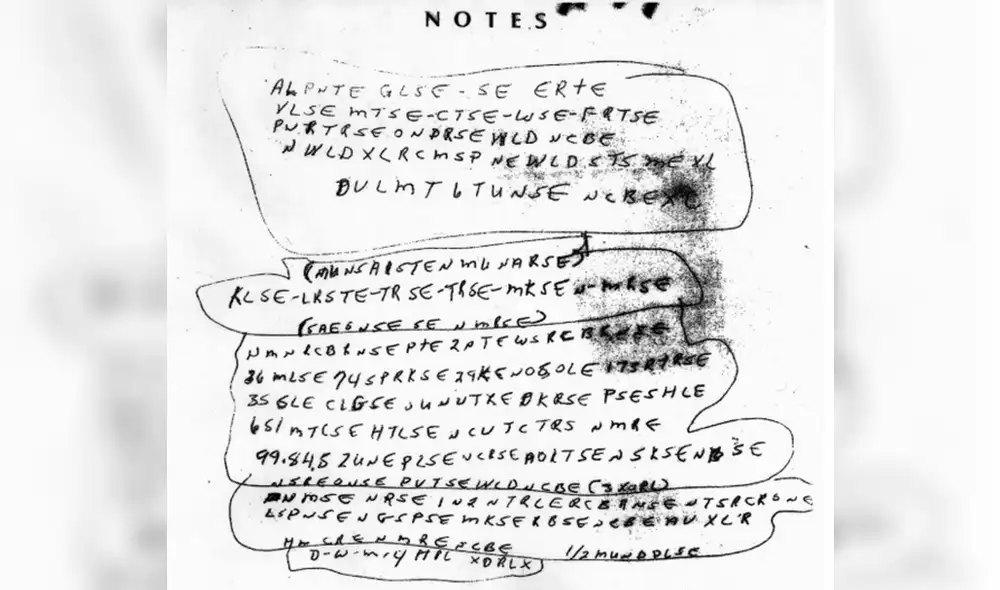 NOTES
ALPNTE GLSE-SE ERTE
VLSE MTSE-CTSE-WSE-FRTSE
PNRTRSEONDRSEWLD NCBE
NWLDXLRCMSP NEWLDSTSMEXL
DULMT6TUNSE NCBEXC
(MUNSAISTENMUNARSE)
KLSE-LRSTE-TRSE-TRSE-MKSEN-MRSE
(SAEGNSESE NMBSE)
NMNRCBRNSEPTE2PTEWSRCBRNSE
36MLSE74SPRKSE29KENOSOLE173RTRSE
35GLE CLGSE UUNUTXEDKRSE PSESHLE
651MTCSE HTLSE NCUTCTRS NMRE
99.84.52UNEPLSENCRSEAOLTSENSKSENBSE
NSREONSE PUTSEWLDNCBE(3XORL)
NMSE NRSE IN2NTRLERCBRNSE NTSRCRONE
LSPNSENGSPSE MKSERBSENCBEAUXL'R
HM CRENMRENCBE 1/2MUNDDLSE
D-W-M-Y HPL XDRLX